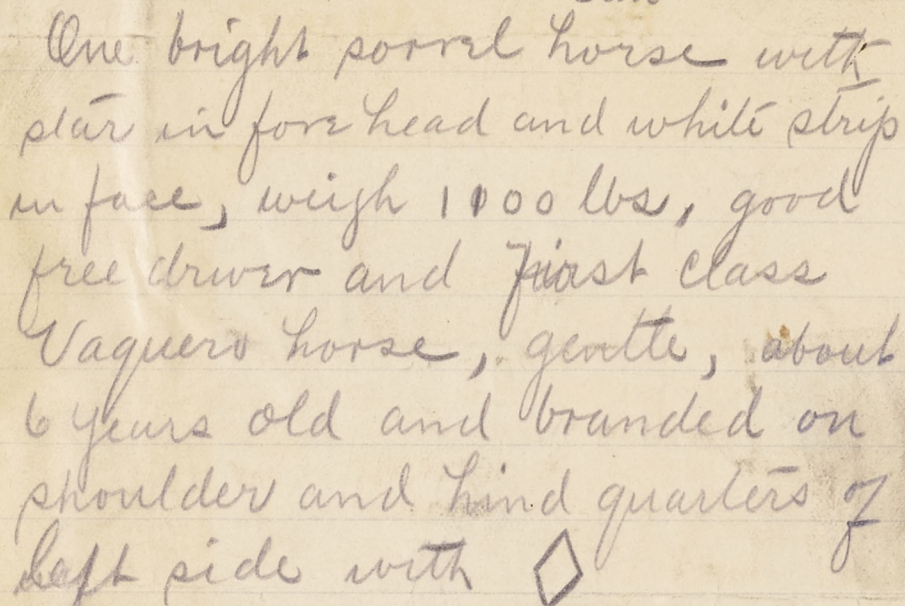 One bright sorrel horse with
star in fore head and white strip
in face, weigh 1100 lbs, good
free driver and first class
Vaquero horse, gentle, about
6 years old and branded on
shoulder and hind quarters of
left side with ◇